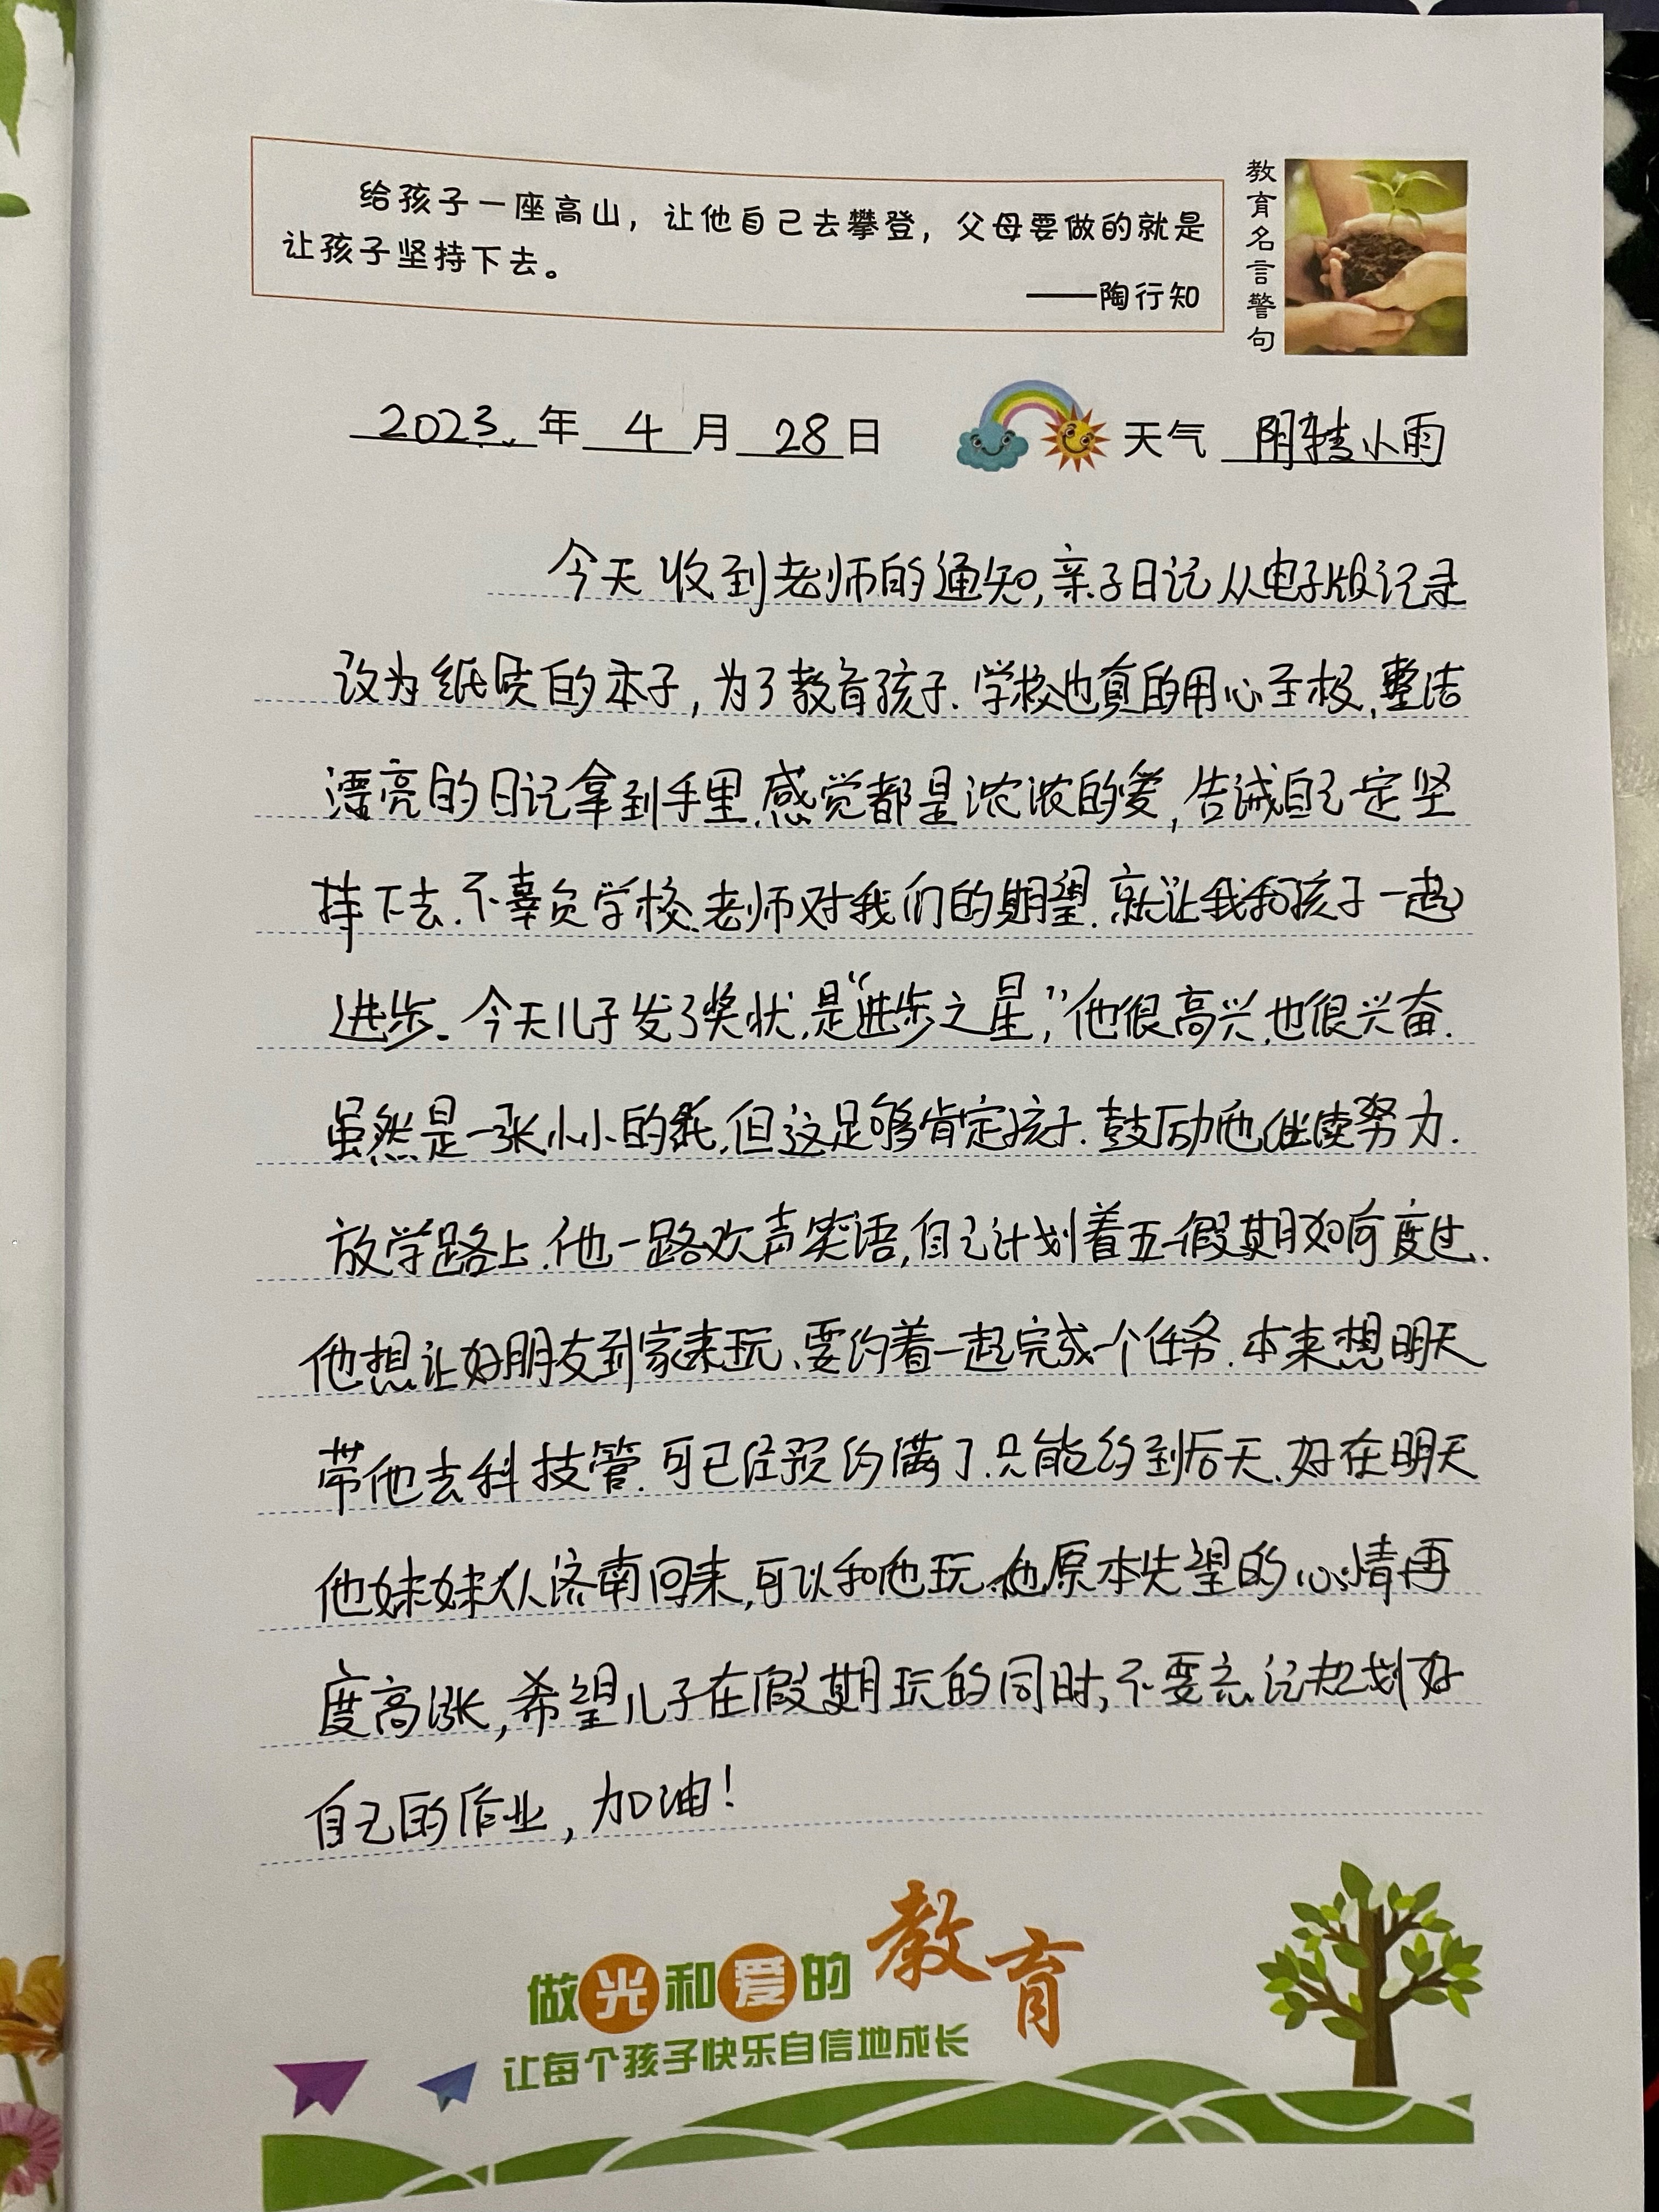 给孩子一座高山，让他自己去攀登，父母要做的就是
让孩子坚持下去。
——陶行知
教育名言警句
2023年4月28日 天气 阴转小雨
今天收到老师的通知,亲子日记从电子版记录
改为纸质的本子,为了教育孩子.学校也真的用心至极,整洁
漂亮的日记拿到手里.感觉都是浓浓的爱,告诫自己一定坚
持下去.不辜负学校.老师对我们的期望.就让我和孩子一起
进步。今天儿子发了奖状,是“进步之星,”他很高兴,也很兴奋.
虽然是一张小小的纸,但这足够肯定孩子.鼓励他继续努力.
放学路上.他一路欢声笑语,自己计划着五一假期如何度过.
他想让好朋友到家来玩、要约着一起完成一个任务.本来想明天
带他去科技管.可已经预约满了.只能约到后天.好在明天
他妹妹从济南回来,可以和他玩.他原本失望的心情再
度高涨,希望儿子在假期玩的同时,不要忘记规划好
自己的作业,加油!
做光和爱的教育
让每个孩子快乐自信地成长